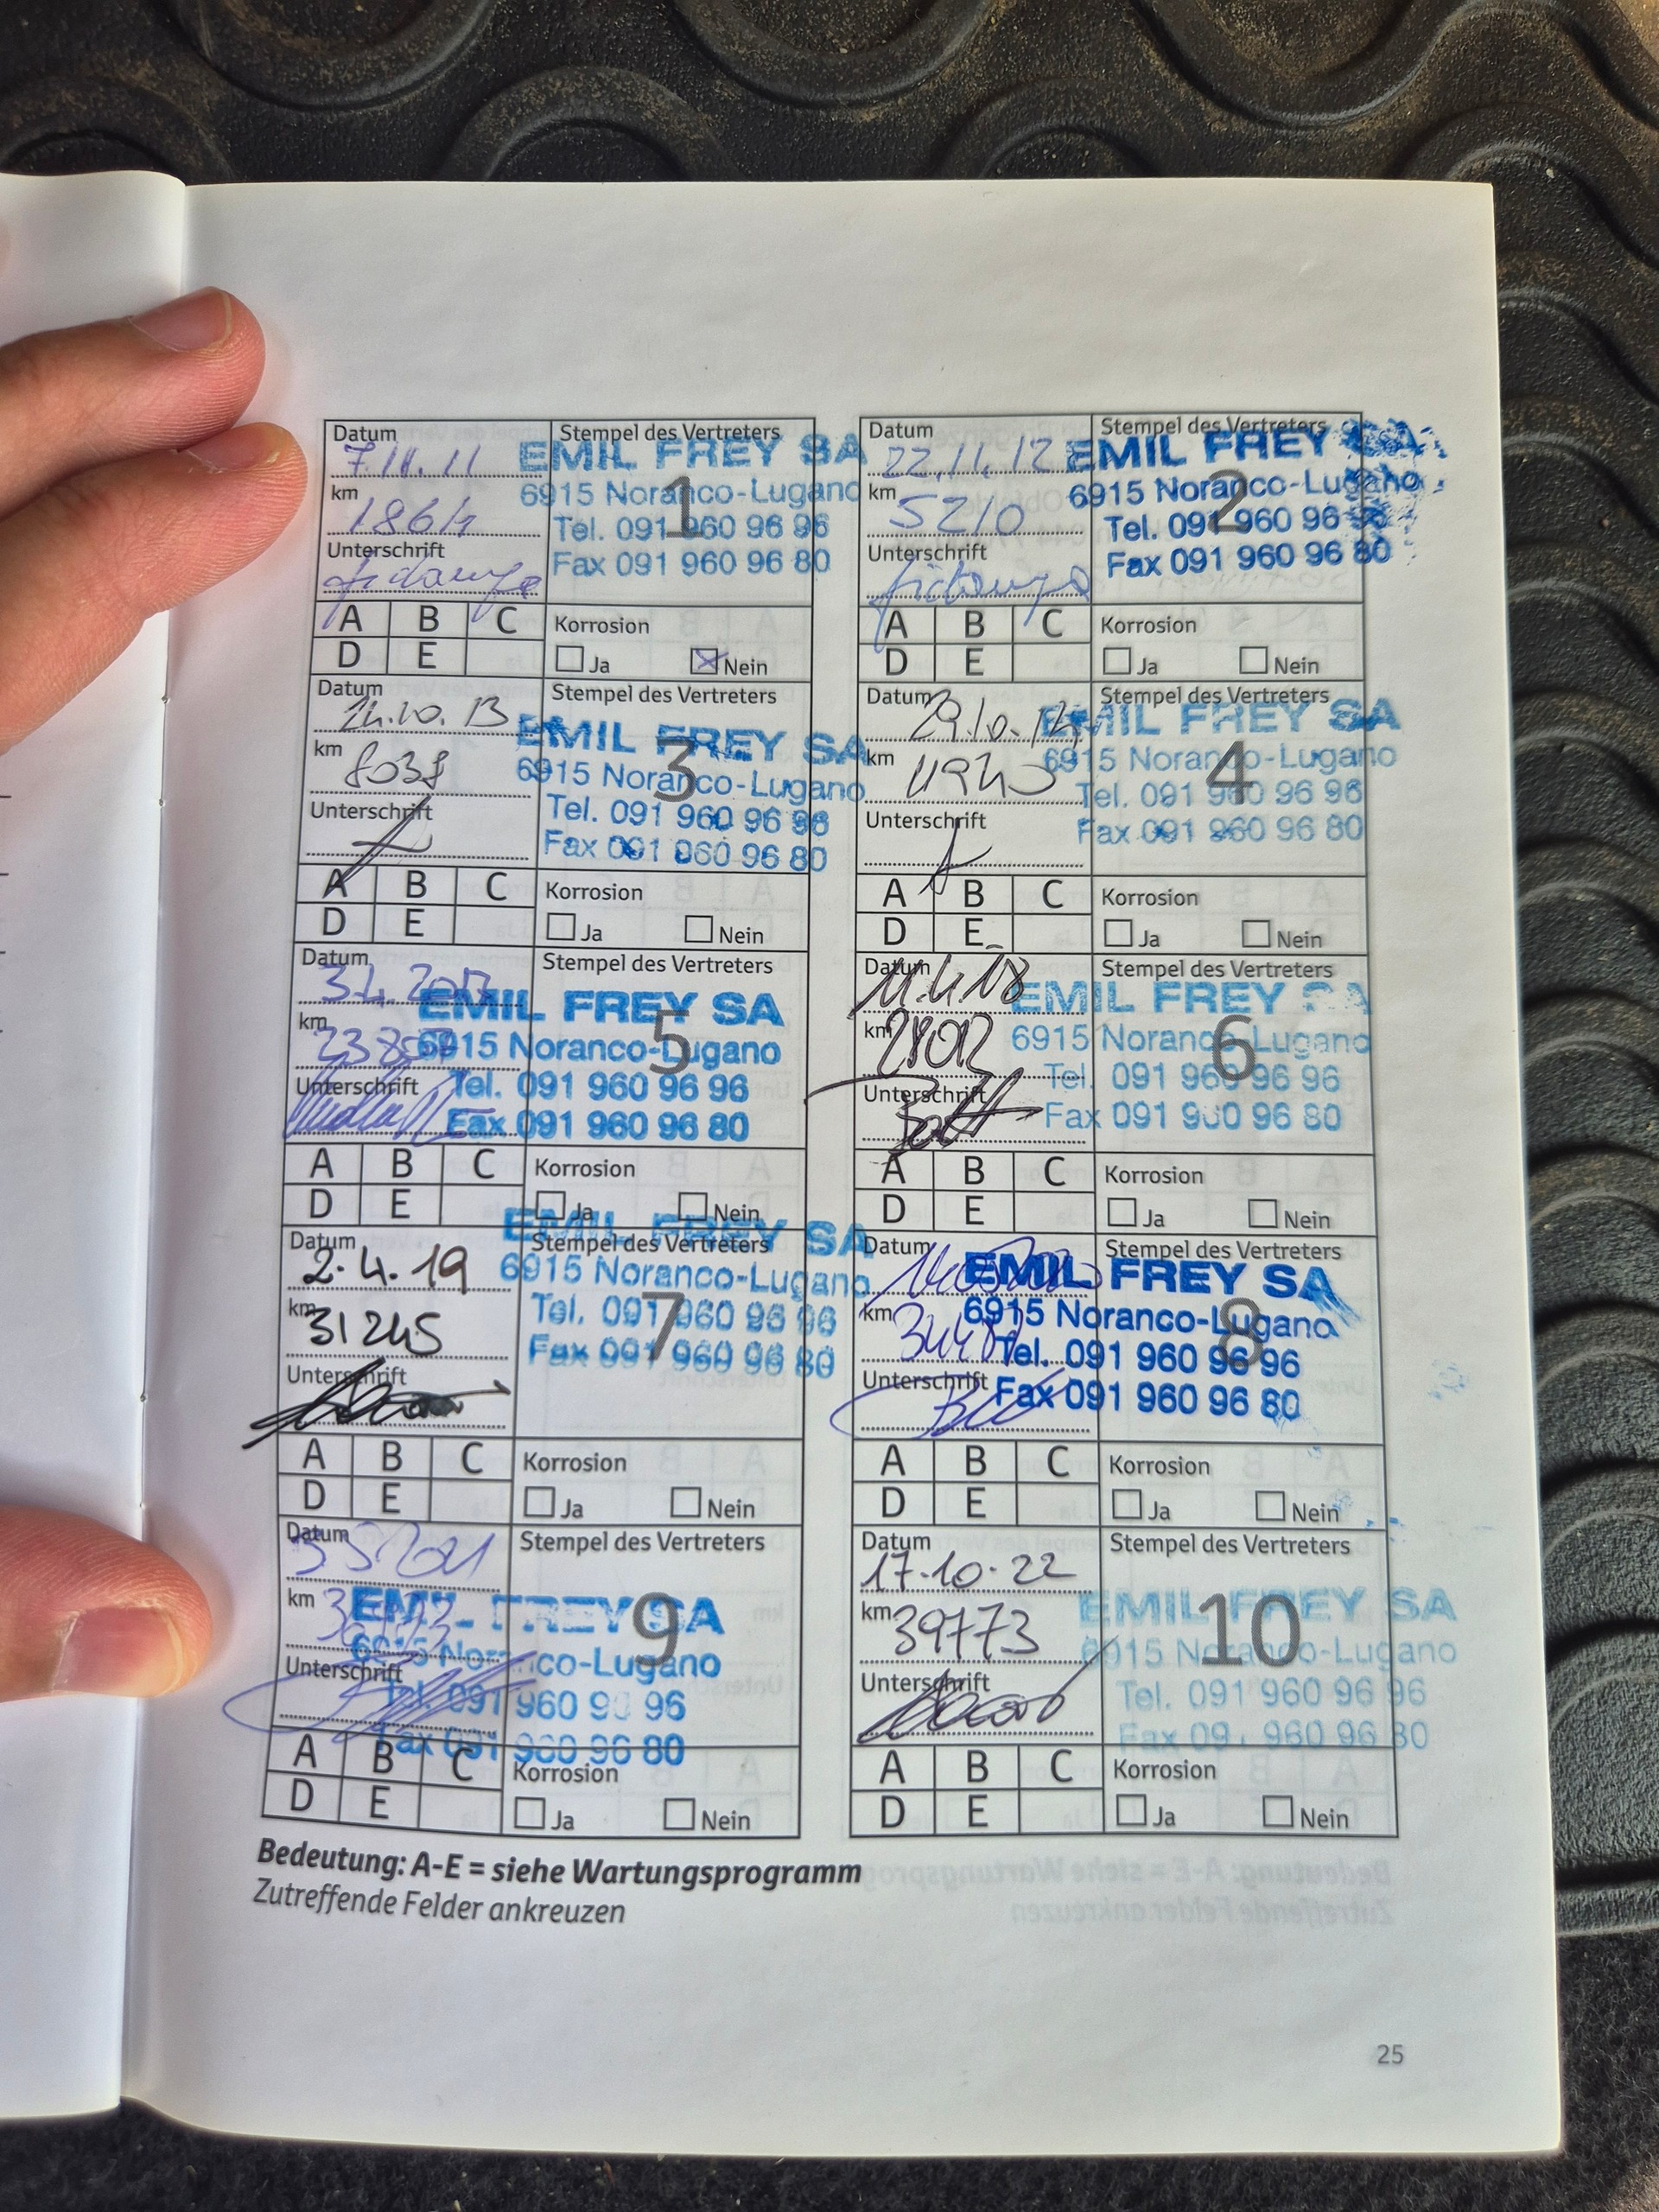 Datum
7.11.11
Stempel des Vertreters
EMIL FREY SA
6915 Noranco-Lugano
Tel. 091 960 96 96
Fax 091 960 96 80
1
km
Unterschrift
A B C
D E
Korrosion
Ja Nein
Datum
22.11.12
Stempel des Vertreters
EMIL FREY SA
6915 Noranco-Lugano
Tel. 091 960 96 96
Fax 091 960 96 80
2
km
5210
Unterschrift
A B C
D E
Korrosion
Ja Nein
Datum
Stempel des Vertreters
EMIL FREY SA
6915 Noranco-Lugano
Tel. 091 960 96 96
Fax 091 960 96 80
3
km
8038
Unterschrift
A B C
D E
Korrosion
Ja Nein
Datum
Stempel des Vertreters
EMIL FREY SA
6915 Noranco-Lugano
Tel. 091 960 96 96
Fax 091 960 96 80
4
km
Unterschrift
A B C
D E
Korrosion
Ja Nein
Datum
Stempel des Vertreters
EMIL FREY SA
6915 Noranco-Lugano
Tel. 091 960 96 96
Fax 091 960 96 80
5
km
Unterschrift
A B C
D E
Korrosion
Ja Nein
Datum
11.4.18
Stempel des Vertreters
EMIL FREY SA
6915 Noranco-Lugano
Tel. 091 960 96 96
Fax 091 960 96 80
6
km
28012
Unterschrift
A B C
D E
Korrosion
Ja Nein
Datum
2.4.19
Stempel des Vertreters
EMIL FREY SA
6915 Noranco-Lugano
Tel. 091 960 96 96
Fax 091 960 96 80
7
km
31245
Unterschrift
A B C
D E
Korrosion
Ja Nein
Datum
Stempel des Vertreters
EMIL FREY SA
6915 Noranco-Lugano
Tel. 091 960 96 96
Fax 091 960 96 80
8
km
Unterschrift
A B C
D E
Korrosion
Ja Nein
Datum
Stempel des Vertreters
EMIL FREY SA
6915 Noranco-Lugano
Tel. 091 960 96 96
Fax 091 960 96 80
9
km
Unterschrift
A B C
D E
Korrosion
Ja Nein
Datum
17.10.22
Stempel des Vertreters
EMIL FREY SA
6915 Noranco-Lugano
Tel. 091 960 96 96
Fax 091 960 96 80
10
km
39773
Unterschrift
A B C
D E
Korrosion
Ja Nein
Bedeutung: A-E = siehe Wartungsprogramm
Zutreffende Felder ankreuzen
25